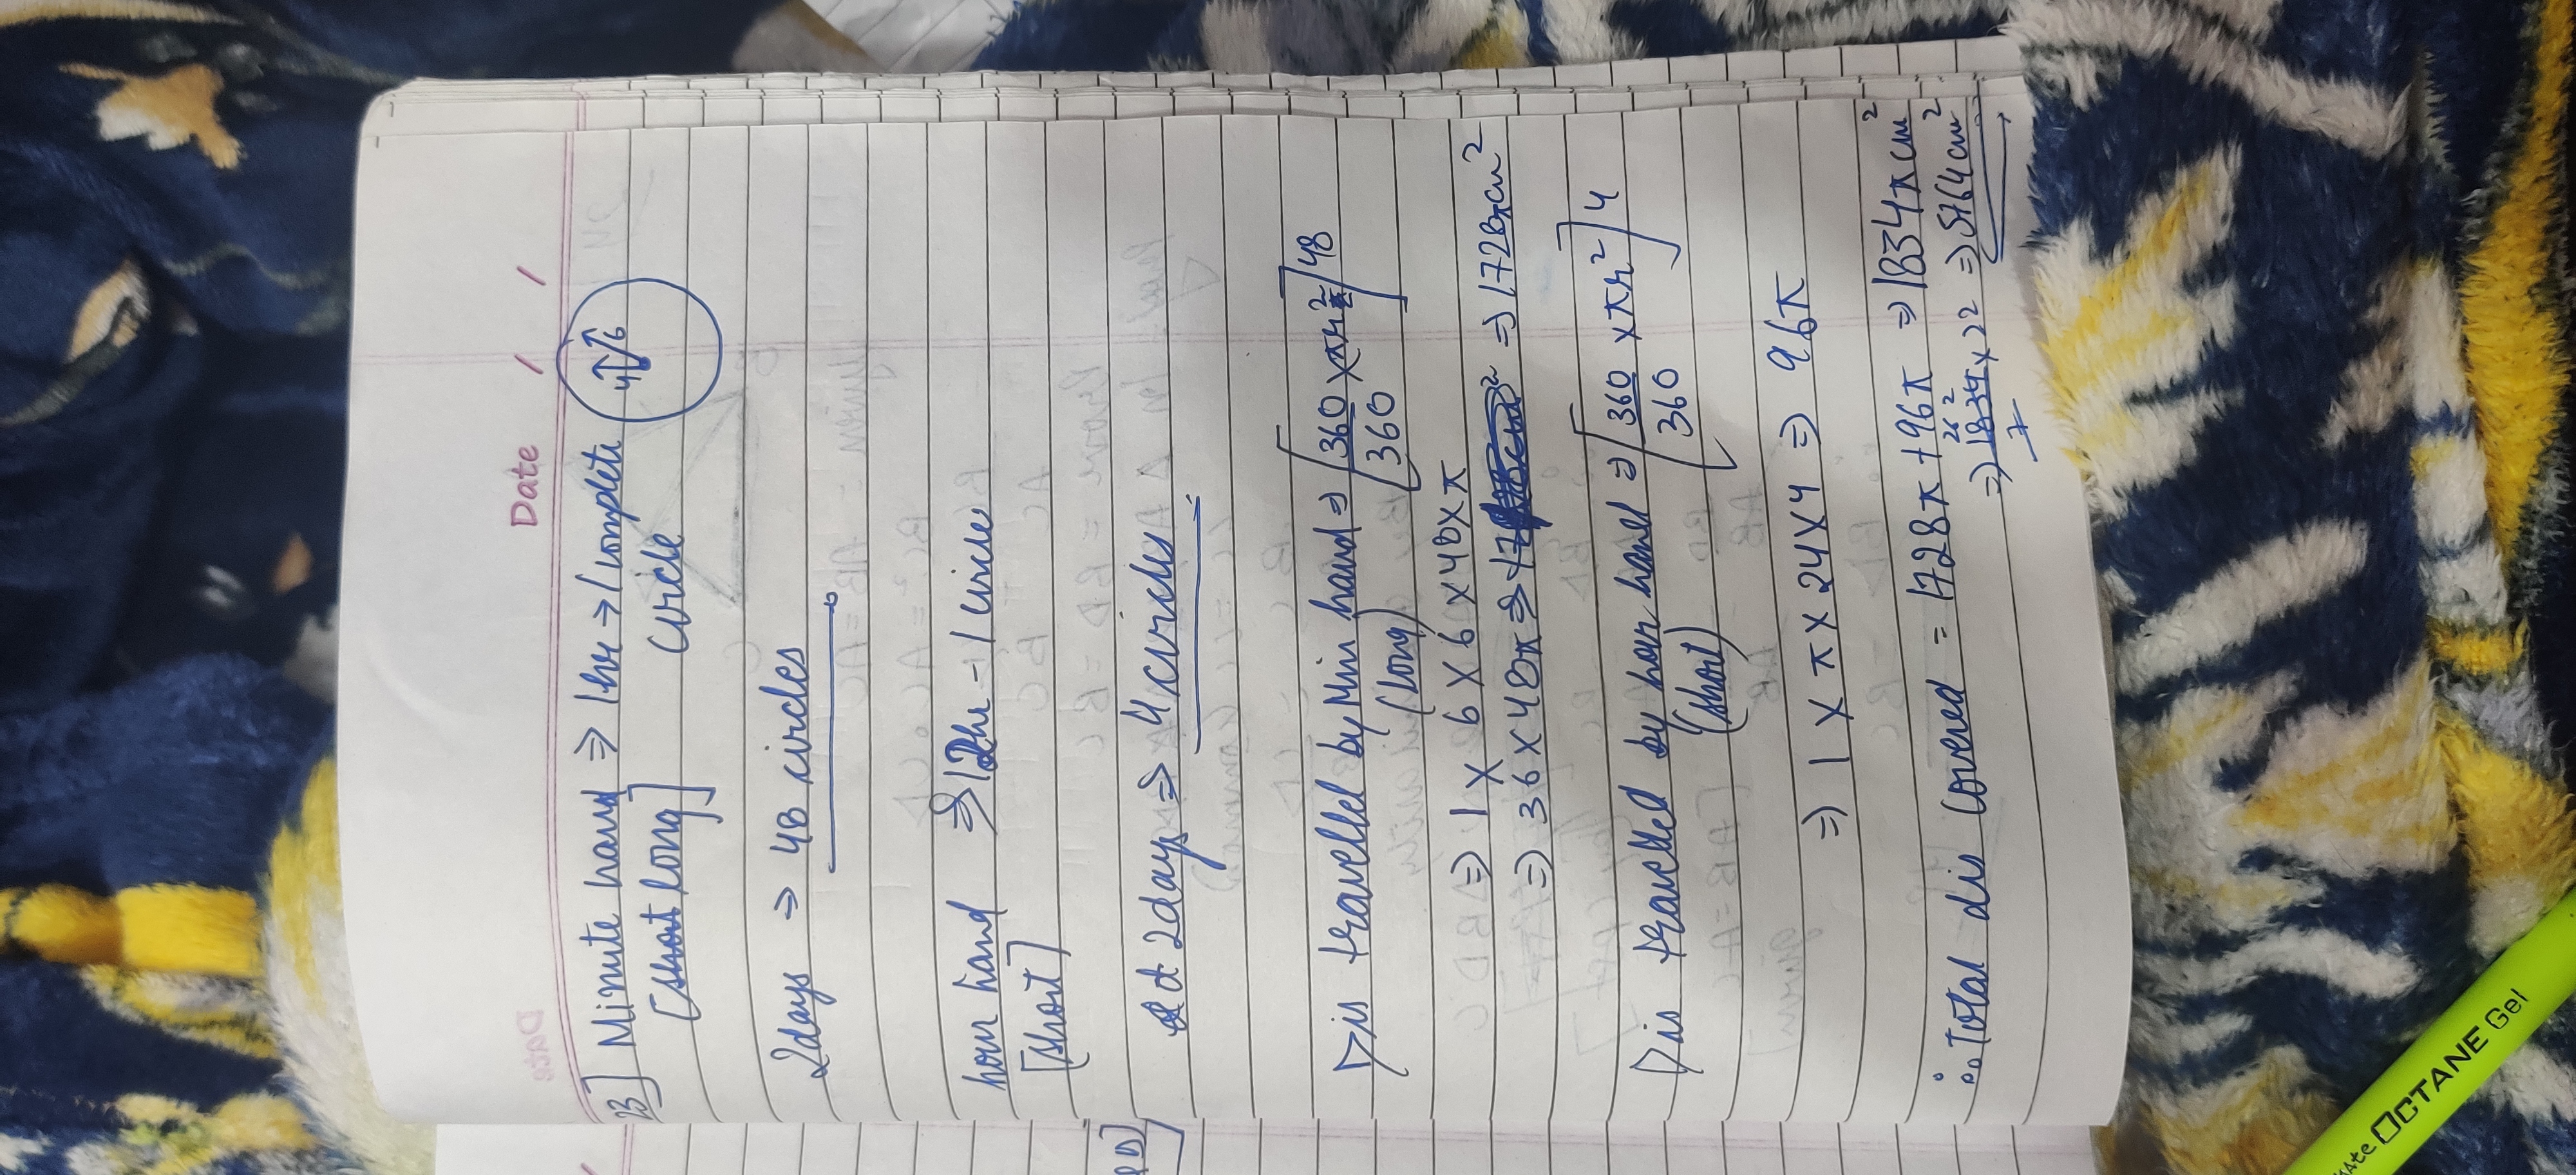 Date / /
23] Minute hand ⇒ 1hr → 1 complete
[short long] circle
4 6
2days ⇒ 48 circles
hour hand ⇒ 12hr - 1 circle
[short]
at 2days ⇒ 4 circles
Dis travelled by Min hand ⇒ [360/360 × πr²] 48
(long)
⇒ 1 × 6 × 6 × 48 × π
⇒ 36 × 48π ⇒ ⇒ 1728πcm²
Dis travelled by hour hand ⇒ [360/360 × πr²] 4
(short)
⇒ 1 × π × 24 × 4 ⇒ 96π
∴ Total dis covered = 1728π + 96π ⇒ 1834πcm²
⇒ 1834 262 × 22/7 ⇒ 5764cm²
OCTANE Gel